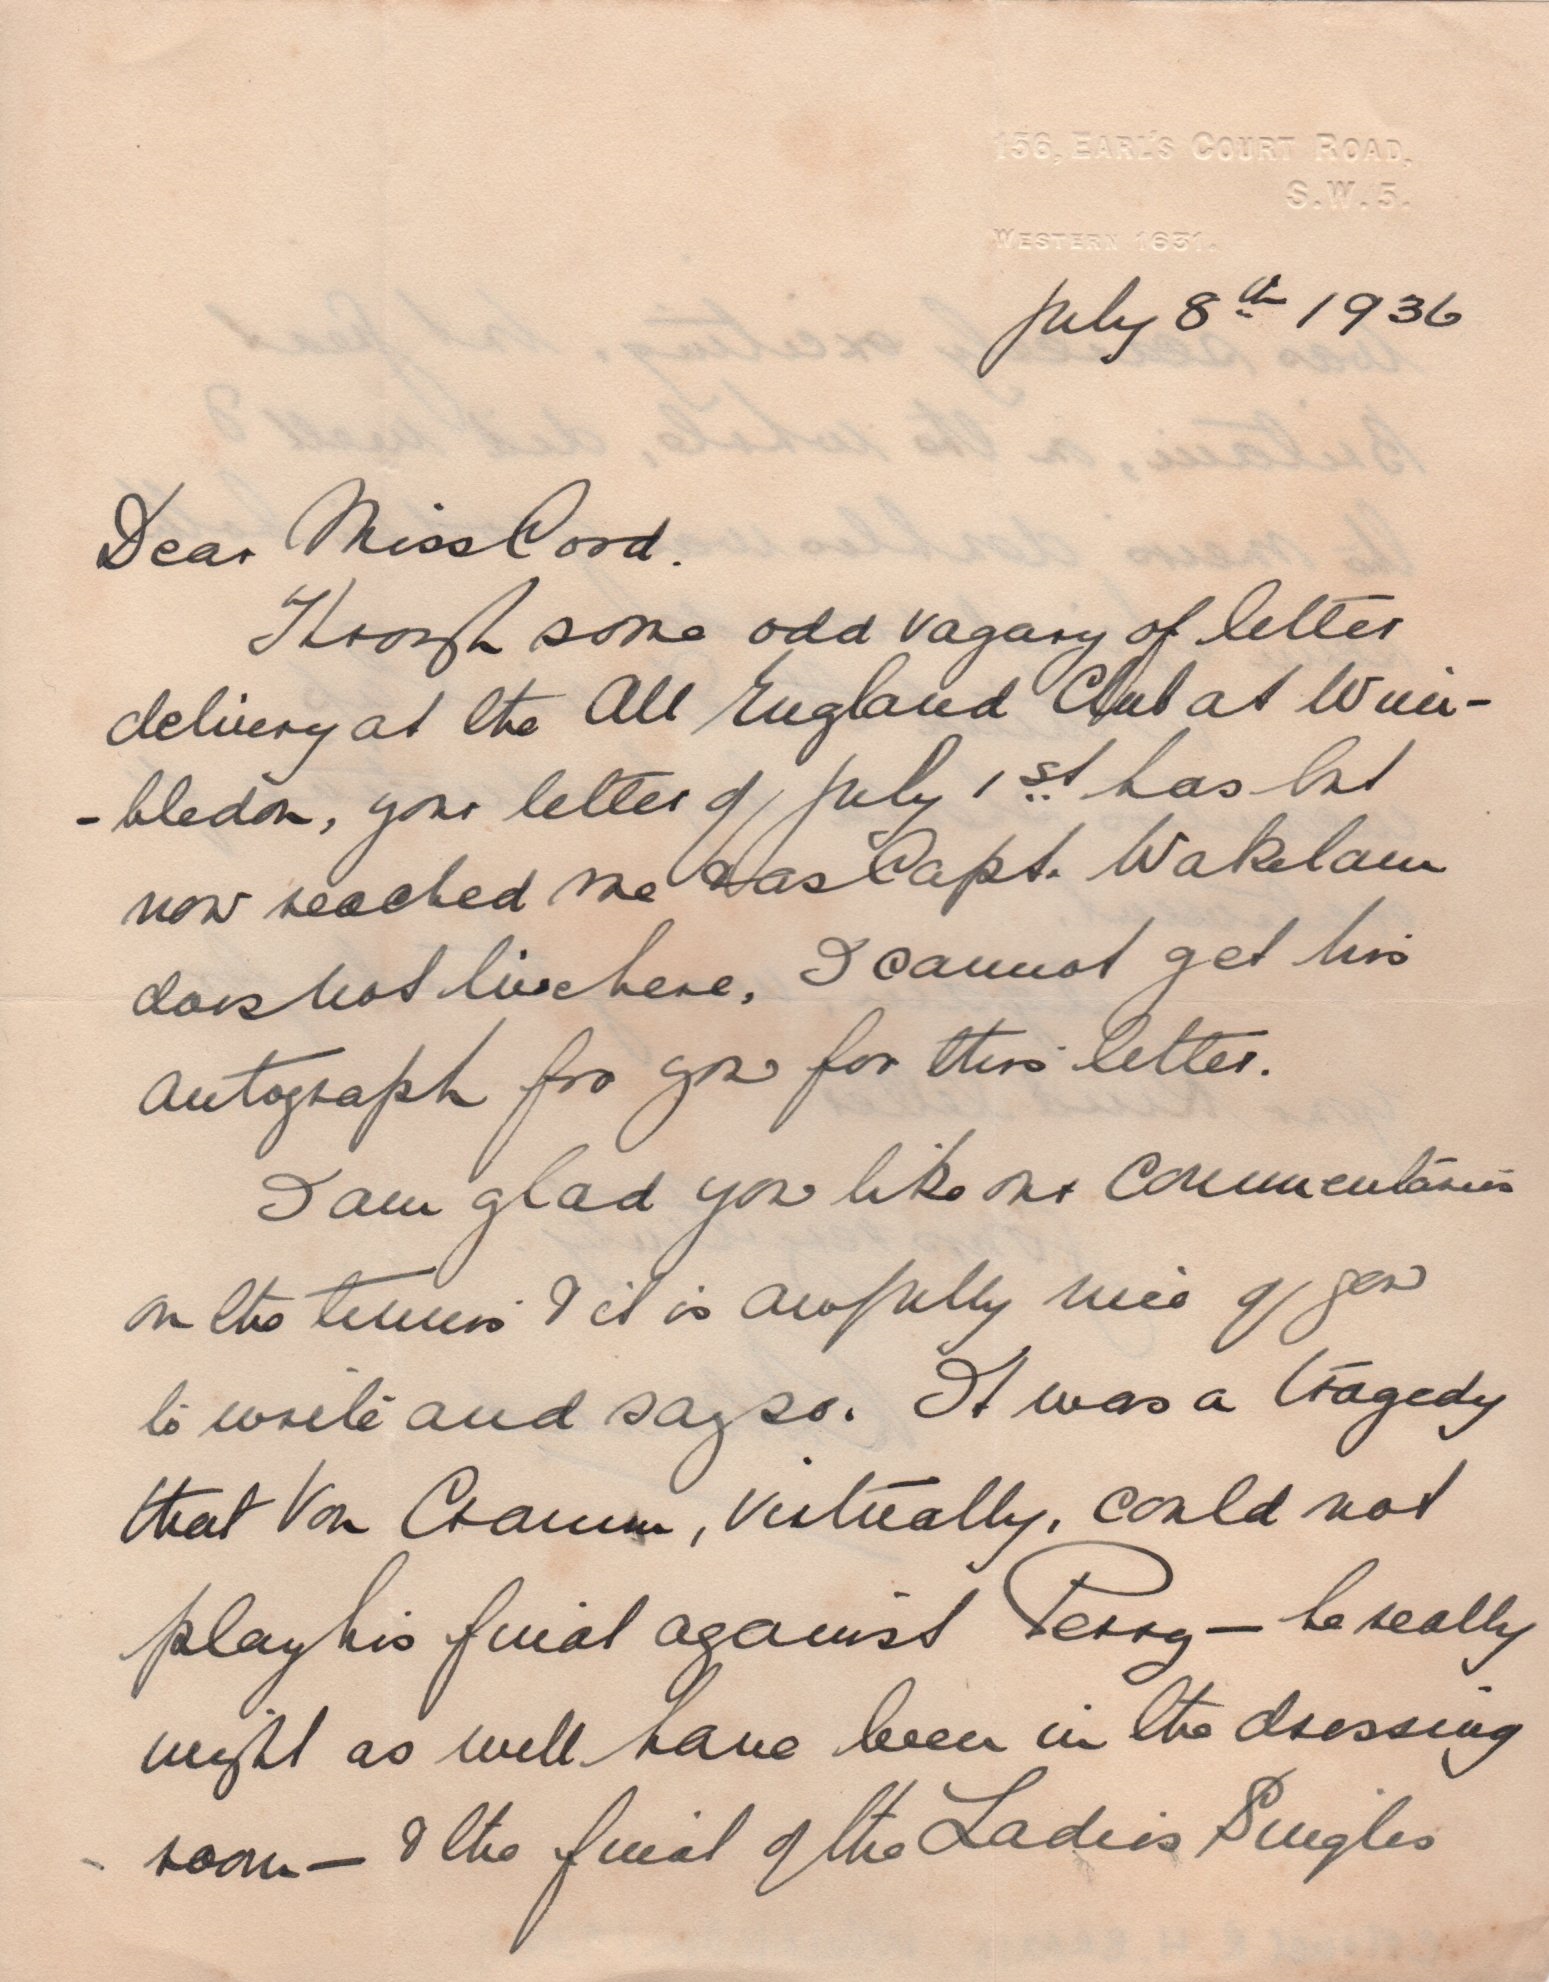 156, EARL'S COURT ROAD,
S.W.5.
WESTERN 1631.
July 8th 1936
Dear Miss Cord.
Through some odd vagary of letter
delivery at the All England Club at Wim-
-bledon, your letter of July 1st has but
now reached me & as Capt. Wakelam
does not live here, I cannot get his
autograph for you for this letter.
I am glad you like our commentaries
on the tennis & it is awfully nice of you
to write and say so. It was a tragedy
that Von Cramm, virtually, could not
play his final against Perry — he really
might as well have been in the dressing
room — & the final of the Ladies Singles